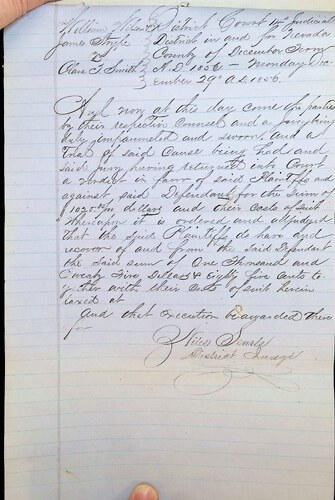 William Wilson } District Court 14 Judicial
James Hoyle } District in and for Nevada
vs } County of December Term
Clare F Smith } A.D. 1856 — Monday Dec
ember 29th A.D. 1856.
And now at this day come the parties
by their respective Counsel and a jury being
duly impannelled and sworn. And a
trial of said Cause being had and
said jury having returned into Court
a verdict in favor of said Plaintiffs and
against said Defendant for the sum of
dollars and their Costs of Suit
Whereupon it is ordered and adjudged
that the said Plaintiffs do have and
recover of and from the said Defendant
the said sum of One Thousand and
Twenty Five Dollars & Eighty five cents to
gether with their Costs of suit herein
taxed at
And that execution be awarded there
for
Niles Searls
District Judge